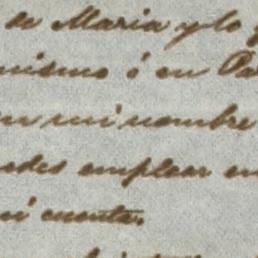 de Maria y lo
mismo ó en Pa
en mi nombre
edes emplear en
mi cuenta.